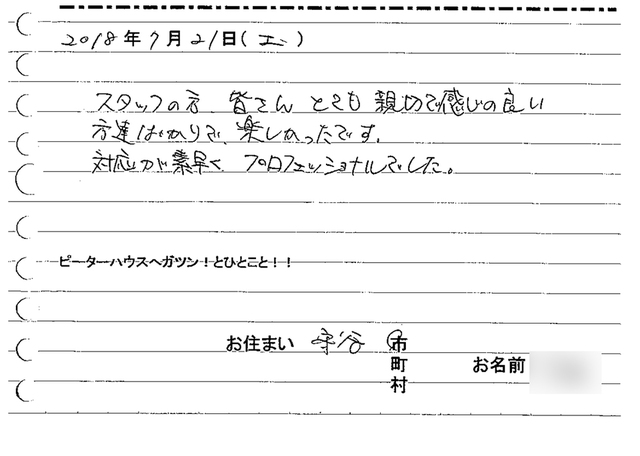 2018年7月21日(土)
スタッフの方、皆さん とても 親切で感じの良い
方達ばかりで、楽しかったです。
対応が素早く プロフェッショナルでした。
ピーターハウスへガツン！とひとこと！！
お住まい 守谷 市
町 お名前
村